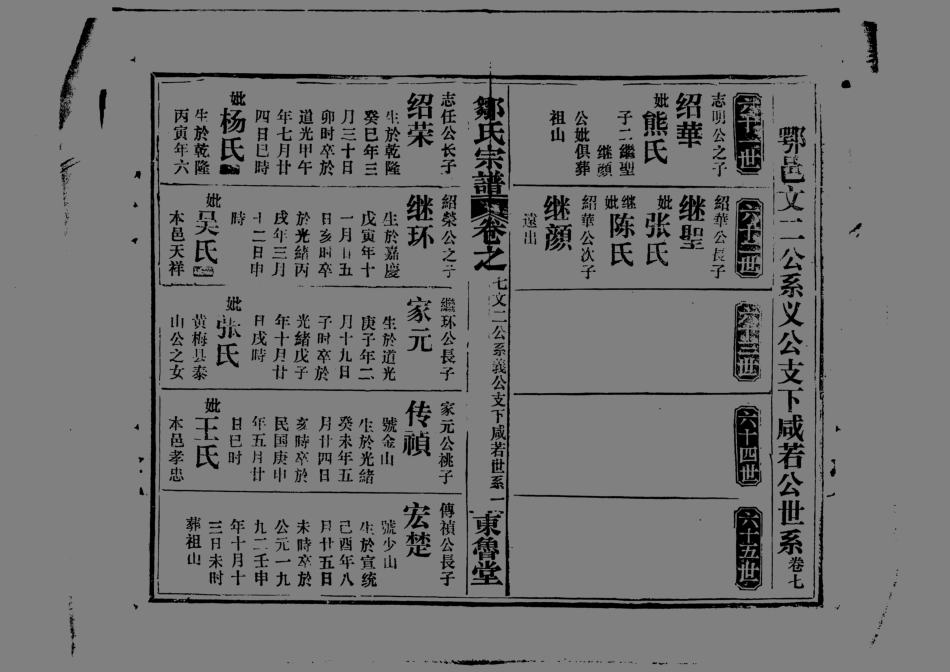 鄂邑文二公系义公支下咸若公世系卷七
六十一世
志明公之子
绍華
妣熊氏
子二繼聖
继顔
公妣俱葬
祖山
六十二世
紹華公長子
继聖
妣张氏
继妣陈氏
紹華公次子
继顔
遠出
六十三世
六十四世
六十五世
鄒氏宗譜
卷之
七文二公系義公支下咸若世系一
東魯堂
志任公长子
绍荣
生於乾隆
癸巳年三
月三十日
卯时卒於
道光甲午
年七月廿
四日巳時
妣杨氏
生於乾隆
丙寅年六
紹榮公之子
继环
生於嘉慶
戊寅年十
一月廿五
日亥时卒
於光緒丙
戌年三月
十二日申
時
妣吴氏
本邑天祥
繼环公長子
家元
生於道光
庚子年二
月十九日
子时卒於
光緒戊子
年十月廿
日戌時
妣张氏
黄梅县泰
山公之女
家元公祧子
传禎
號金山
生於光緒
癸未年五
月廿四日
亥時卒於
民国庚申
年五月廿
日巳时
妣王氏
本邑孝忠
傳禎公長子
宏楚
號少山
生於宣统
己酉年八
月廿五日
未時卒於
公元一九
九二壬申
年十月十
三日未时
葬祖山